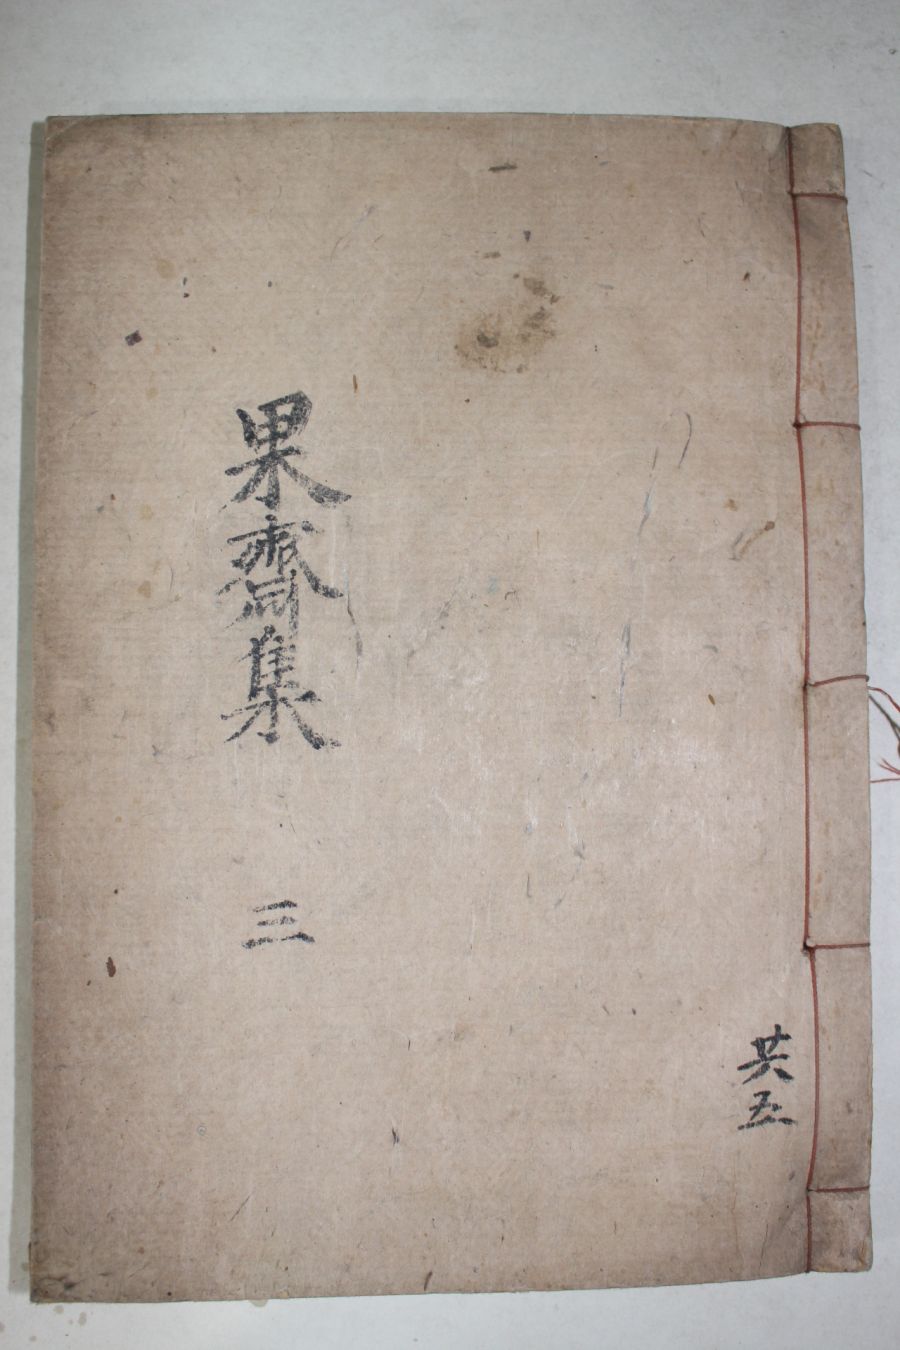 共五
果齋集
三